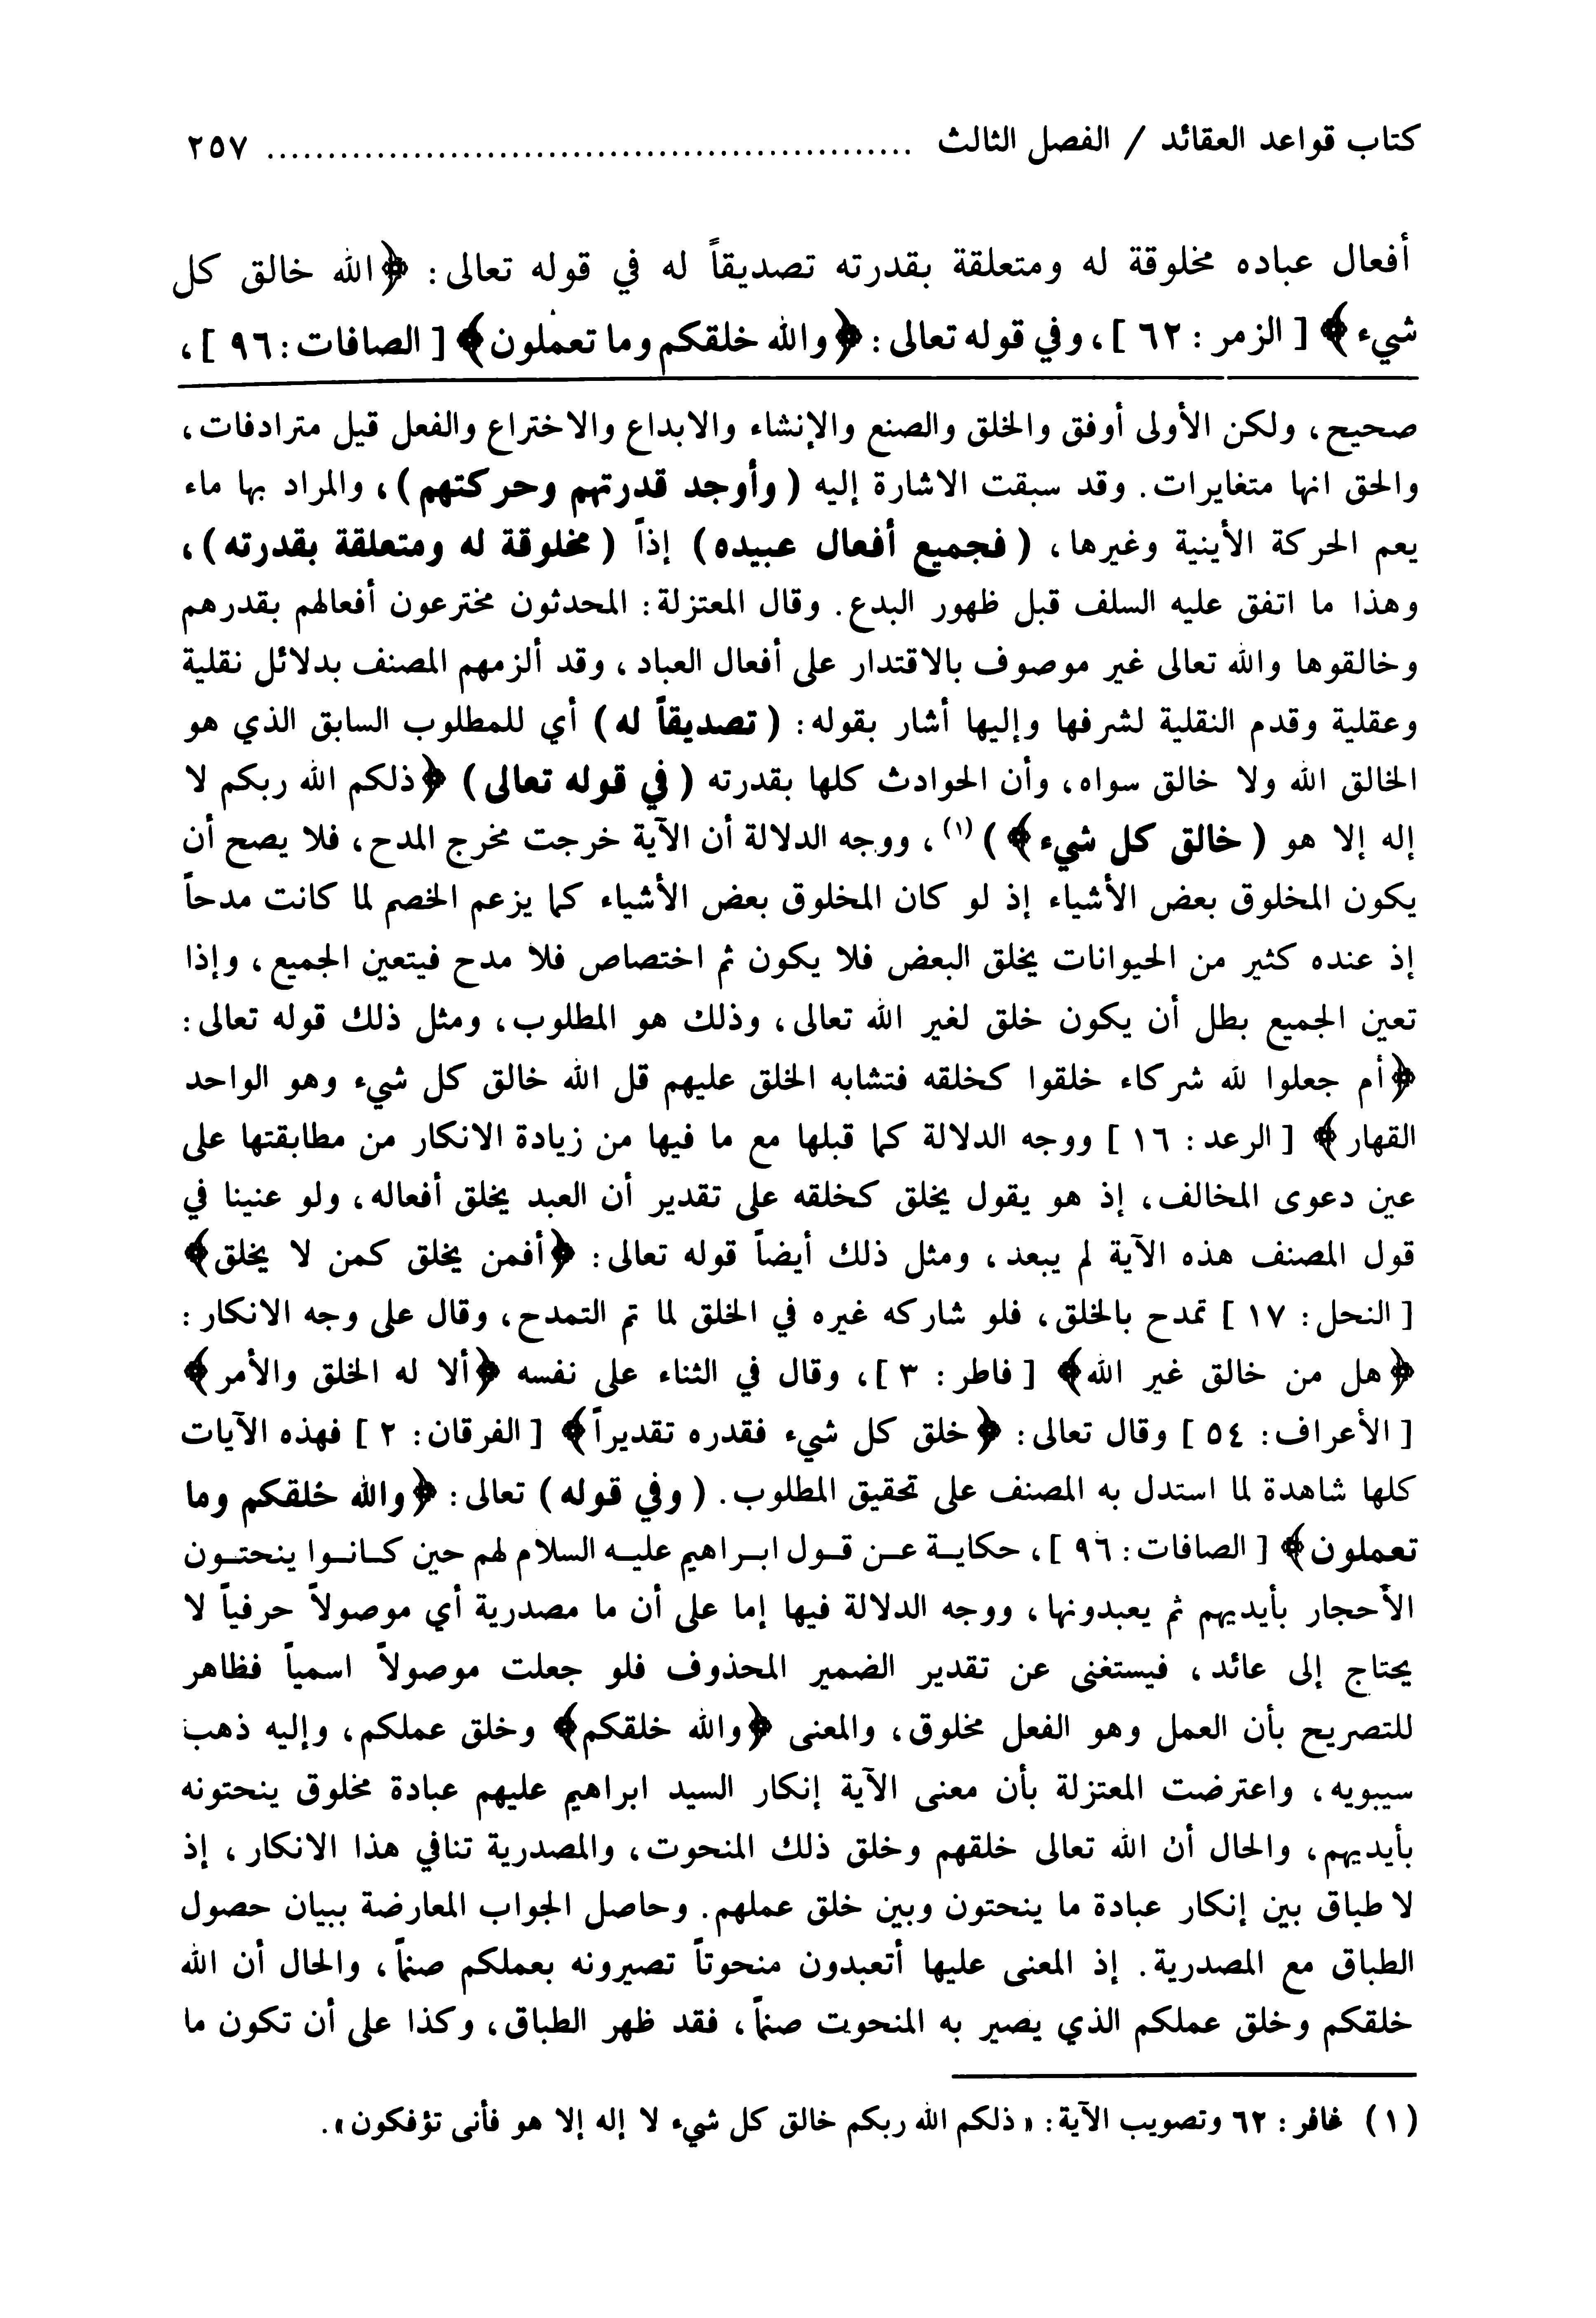 كتاب قواعد العقائد / الفصل الثالث ................................................... ٢٥٧
أفعال عباده مخلوقة له ومتعلقة بقدرته تصديقاً له في قوله تعالى: ﴿الله خالق كل
شيء﴾ [ الزمر : ٦٢ ]، وفي قوله تعالى: ﴿والله خلقكم وما تعملون﴾ [ الصافات: ٩٦ ]،
صحيح، ولكن الأولى أوفق والخلق والصنع والإنشاء والابداع والاختراع والفعل قيل مترادفات،
والحق انها متغايرات. وقد سبقت الاشارة إليه ( وأوجد قدرتهم وحركتهم )، والمراد بها ماء
يعم الحركة الأينية وغيرها، ( فجميع أفعال عبيده ) إذاً ( مخلوقة له ومتعلقة بقدرته )،
وهذا ما اتفق عليه السلف قبل ظهور البدع. وقال المعتزلة: المحدثون مخترعون أفعالهم بقدرهم
وخالقوها والله تعالى غير موصوف بالاقتدار على أفعال العباد، وقد ألزمهم المصنف بدلائل نقلية
وعقلية وقدم النقلية لشرفها وإليها أشار بقوله: ( تصديقاً له ) أي للمطلوب السابق الذي هو
الخالق الله ولا خالق سواه، وأن الحوادث كلها بقدرته ( في قوله تعالى ) ﴿ذلكم الله ربكم لا
إله إلا هو ( خالق كل شيء﴾ ) (١)، ووجه الدلالة أن الآية خرجت مخرج المدح، فلا يصح أن
يكون المخلوق بعض الأشياء إذ لو كان المخلوق بعض الأشياء كما يزعم الخصم لما كانت مدحاً
إذ عنده كثير من الحيوانات يخلق البعض فلا يكون ثم اختصاص فلا مدح فيتعين الجميع، وإذا
تعين الجميع بطل أن يكون خلق لغير الله تعالى، وذلك هو المطلوب، ومثل ذلك قوله تعالى:
﴿أم جعلوا لله شركاء خلقوا كخلقه فتشابه الخلق عليهم قل الله خالق كل شيء وهو الواحد
القهار﴾ [ الرعد: ١٦ ] ووجه الدلالة كما قبلها مع ما فيها من زيادة الانكار من مطابقتها على
عين دعوى المخالف، إذ هو يقول يخلق كخلقه على تقدير أن العبد يخلق أفعاله، ولو عنينا في
قول المصنف هذه الآية لم يبعد، ومثل ذلك أيضاً قوله تعالى: ﴿أفمن يخلق كمن لا يخلق﴾
[ النحل: ١٧ ] تمدح بالخلق، فلو شاركه غيره في الخلق لما تم التمدح، وقال على وجه الانكار:
﴿هل من خالق غير الله﴾ [ فاطر: ٣ ]، وقال في الثناء على نفسه ﴿ألا له الخلق والأمر﴾
[ الأعراف: ٥٤ ] وقال تعالى: ﴿خلق كل شيء فقدره تقديراً﴾ [ الفرقان: ٢ ] فهذه الآيات
كلها شاهدة لما استدل به المصنف على تحقيق المطلوب. ( وفي قوله ) تعالى: ﴿والله خلقكم وما
تعملون﴾ [ الصافات: ٩٦ ]، حكايـة عـن قـول ابـراهيم عليـه السلام لهم حين كـانـوا ينحتـون
الأحجار بأيديهم ثم يعبدونها، ووجه الدلالة فيها إما على أن ما مصدرية أي موصولاً حرفياً لا
يحتاج إلى عائد، فيستغنى عن تقدير الضمير المحذوف فلو جعلت موصولاً اسمياً فظاهر
للتصريح بأن العمل وهو الفعل مخلوق، والمعنى ﴿والله خلقكم﴾ وخلق عملكم، وإليه ذهب
سيبويه، واعترضت المعتزلة بأن معنى الآية إنكار السيد ابراهيم عليهم عبادة مخلوق ينحتونه
بأيديهم، والحال أن الله تعالى خلقهم وخلق ذلك المنحوت، والمصدرية تنافي هذا الانكار، إذ
لا طباق بين إنكار عبادة ما ينحتون وبين خلق عملهم. وحاصل الجواب المعارضة ببيان حصول
الطباق مع المصدرية. إذ المعنى عليها أتعبدون منحوتاً تصيرونه بعملكم صنماً، والحال أن الله
خلقكم وخلق عملكم الذي يصير به المنحوت صنماً، فقد ظهر الطباق، وكذا على أن تكون ما
(١) غافر: ٦٢ وتصويب الآية: « ذلكم الله ربكم خالق كل شيء لا إله إلا هو فأنى تؤفكون ».